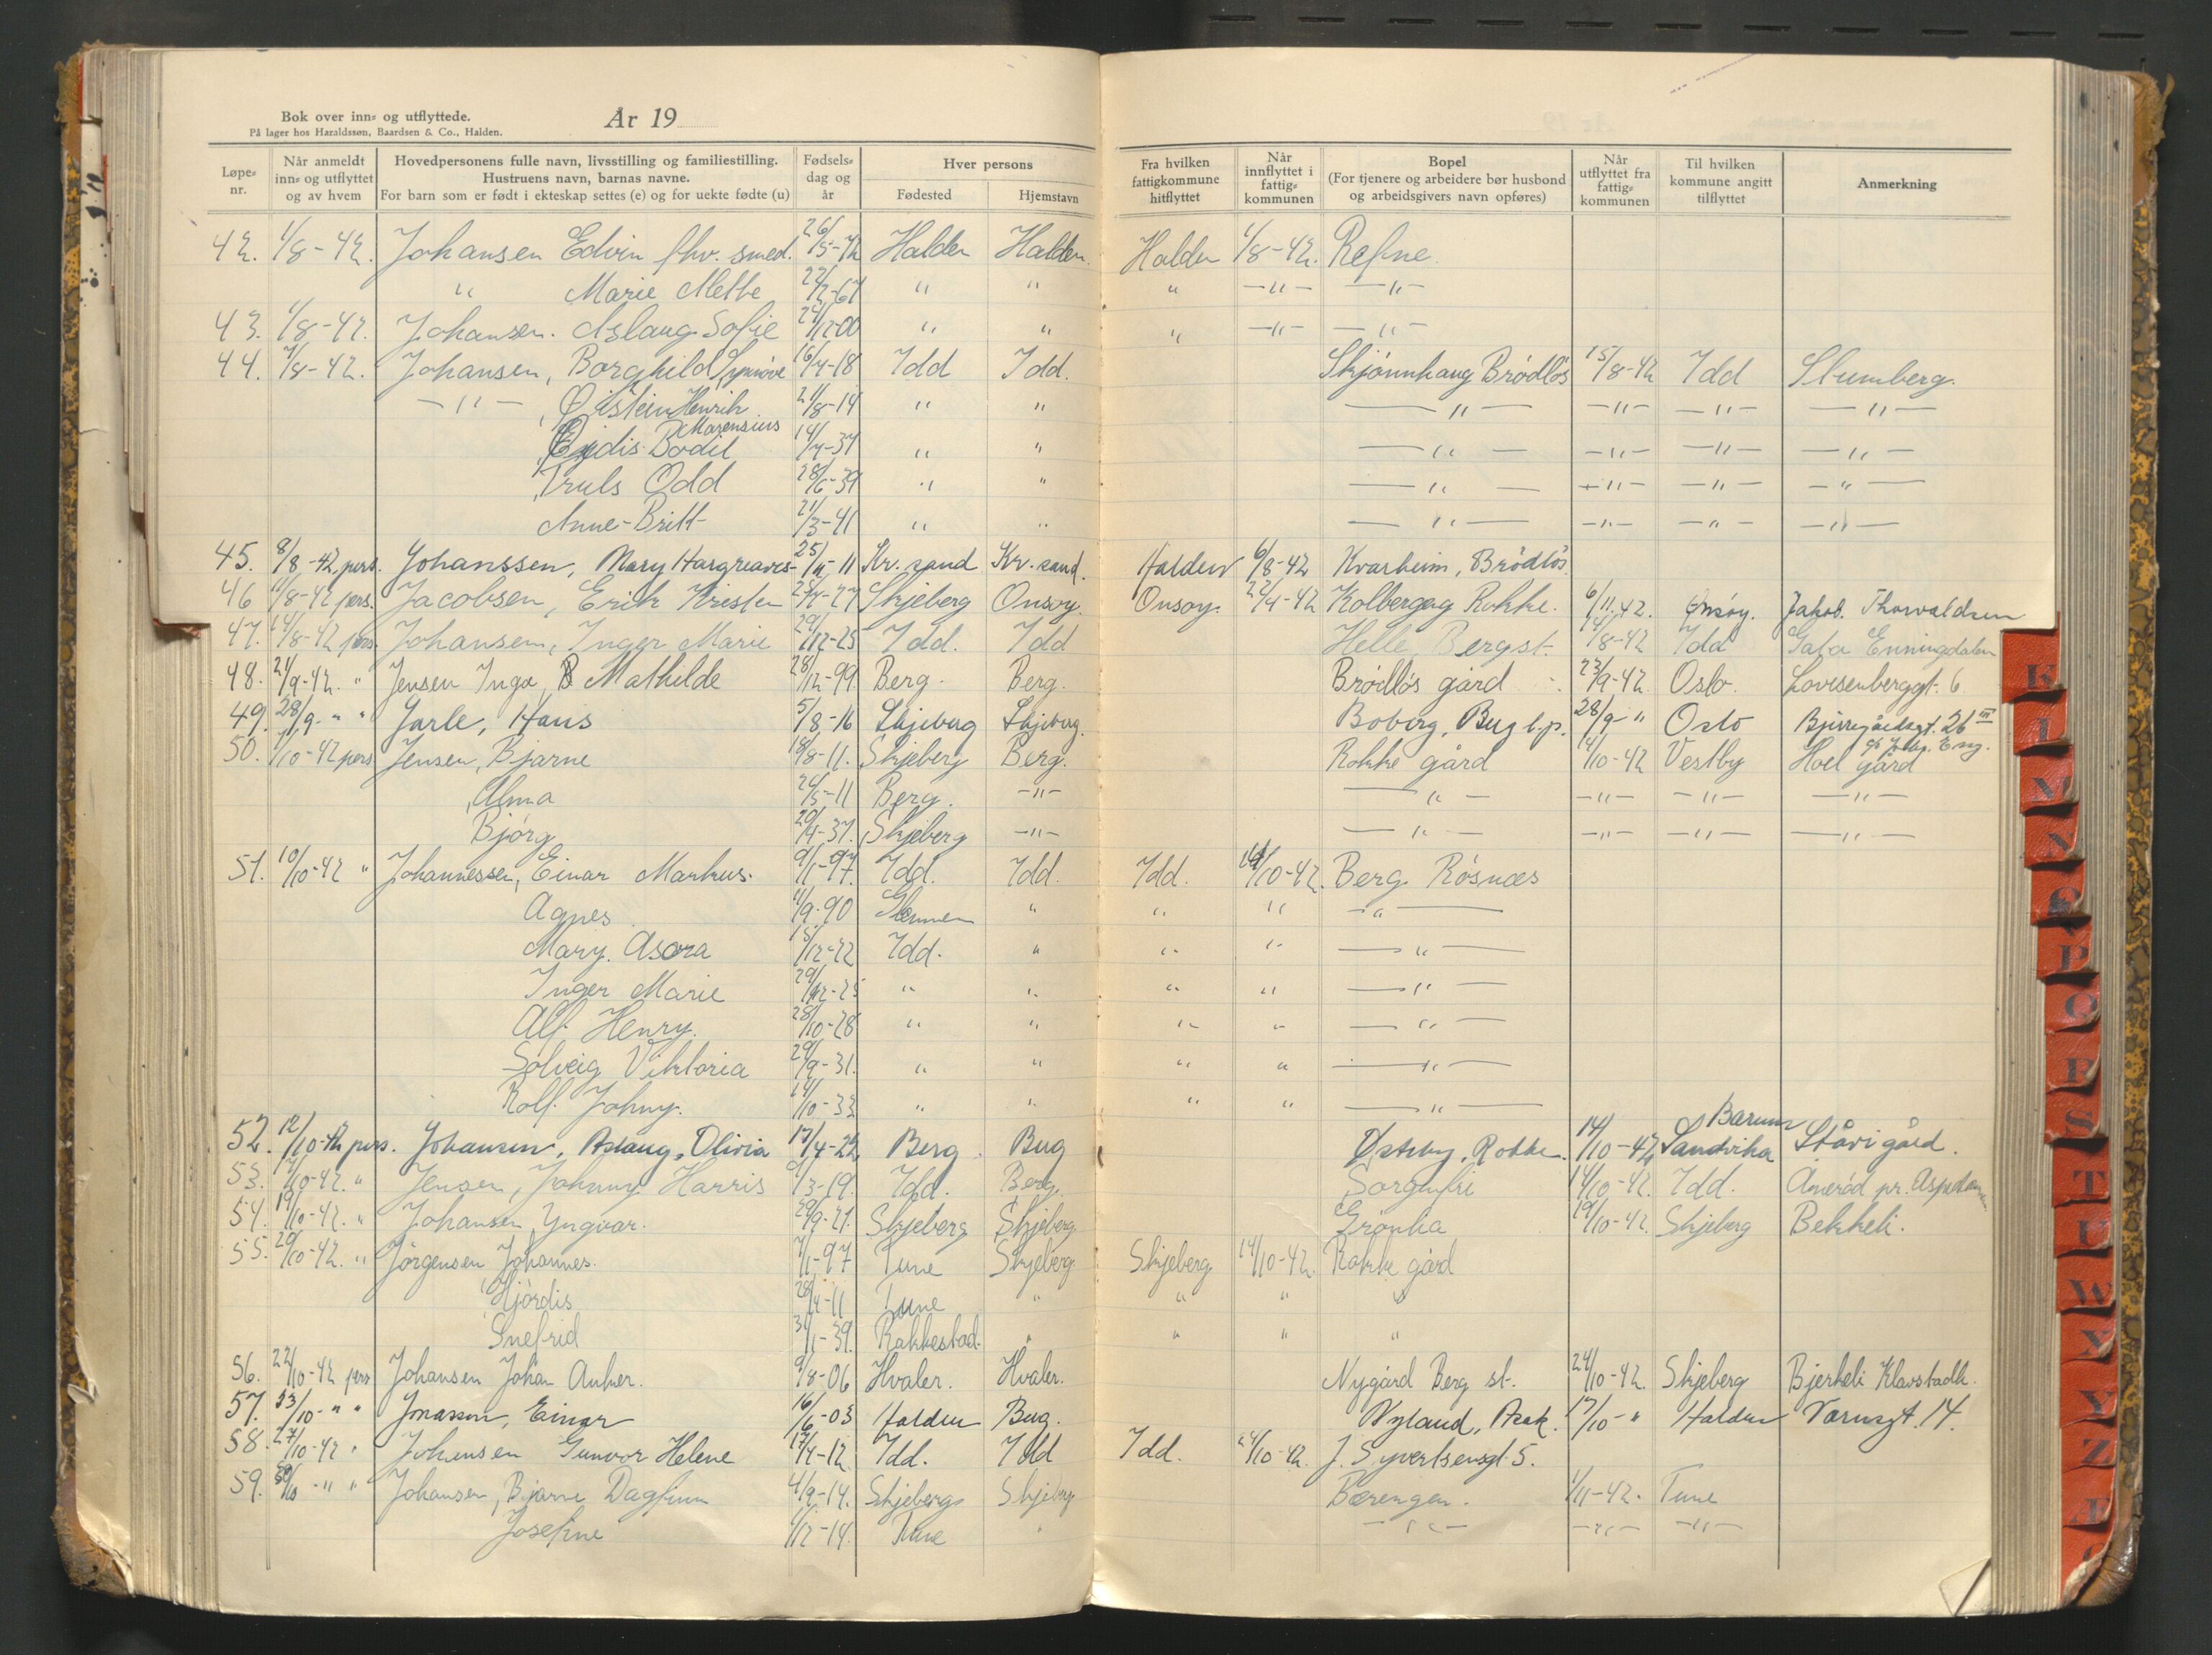 Bok over inn= og utflyttede. År 19
På lager hos Haraldssøn, Baardsen & Co., Halden.
Løpe= nr. Når anmeldt inn= og utflyttet og av hvem Hovedpersonens fulle navn, livsstilling og familiestilling. Hustruens navn, barnas navne. For barn som er født i ekteskap settes (e) og for uekte fødte (u) Fødsels= dag og år Hver persons Fødested Hjemstavn Fra hvilken fattigkommune hitflyttet Når innflyttet i fattig= kommunen Bopel (For tjenere og arbeidere bør husbond og arbeidsgivers navn opføres) Når utflyttet fra fattig= kommunen Til hvilken kommune angitt tilflyttet Anmerkning
42. 1/8-42. Johansen Edvin fhv. smed. 26/5-72 Halden Halden. Halden 1/8-42. Refne.
" Marie Mette 22/2-67 " " " -"- -"-
43. 1/8-42. Johansen. Aslaug Sofie 24/12-00 " " " -"- -"-
44. 7/8-42. Johansen, Borghild Synnöve 16/4-18 Idd Idd. Skjønnhaug Brödlös 15/8-42 Idd Stumberg.
-"- , Øistein Henrik Marensius 21/8-14 " " -"- -"- -"- -"-
, Eydis Bodil 14/4-37 " " -"- -"- -"- -"-
, Truls Odd 28/6-39 " " -"- -"- -"- -"-
Anne-Britt 21/3-41 " " -"- -"- -"- -"-
45. 8/8-42, pers. Johanssen, Mary Hargreaves- 25/11-11 Kr. sand Kr. sand. Halden 6/8-42 Kvarheim, Brödlös.
46 11/8-42 pers. Jacobsen, Erik Kristen 24/4-27 Skjeberg Onsøy. Onsøy. 22/4-42 Kolbergog Rokke. 6/11.42. Onsøy. Jakob. Thorvaldsen
47. 14/8-42 pers. Johansen, Inger Marie 29/12-25 Idd. Idd Helle, Bergst. 14/8-42 Idd Gata Enningdalen
48. 21/9-42. " Jensen Inga B Mathilde 28/12-99. Berg. Berg. Brödlös gård 23/9-42. Oslo. Lovisenberggt. 6
49. 28/9- " " Jarle, Hans 5/8-16 Skjeberg Skjeberg. Boberg, Berg l.p. 28/9- " Oslo Bjerregårdsgt. 26 III
50. 1/10-42 pers Jensen, Bjarne 18/8-11. Skjeberg Berg. Rokke gård 14/10-42 Vestby Hoel gård
, Alma 24/5-11 Berg. -"- -"- -"- -"- -"-
Bjørg 20/4-37. Skjeberg -"- -"- -"- -"- -"-
51. 10/10-42 " Johannessen, Einar Markus. 9/1-97. Idd. Idd. Idd. 14/10-42. Berg Røsnæs
Agnes 11/9-90 Glemmen " " " -"-
Mary. Asora 15/12-22 Idd. " " " -"-
Inger Marie 29/12-25 " " " " -"-
Alf. Henry. 28/10-28 " " " " -"-
Solveig Viktoria 29/9-31. " " " " -"-
Rolf. Johny. 14/10-33 " " " " -"-
52. 12/10-42 pers. Johansen, Aslaug, Olivia 17/4-22 Berg. Berg Østby, Rokke. 14/10-42 Sandvika Barum Ståvi gård.
53. 14/10-42. " Jensen, Johnny Harris 9/3-19. Idd. Berg. Sorgufri 14/10-42. Idd. Amerød pr. Aspedammen
54. 19/10-42. " Johansen, Yngvar. 29/9-21. Skjeberg Skjeberg. Grönlia 19/10-42. Skjeberg Bekkeli.
55. 20/10-42. " Jörgensen Johannes. 7/1-97 Tune Skjeberg. Skjeberg. 14/10-42. Rokke gård
Hjördis 28/4-11 Tune " " " "
Snefrid 31/1-39. Rakkestad. " " " "
56. 22/10-42 pers Johansen Johan Anker. 9/8-06 Hvaler. Hvaler. Nygård Berg st. 24/10-42. Skjeberg Bjerkeli Klavstadh.
57. 23/10- " " Jonasson, Einar 16/6-03 Halden Berg. Nyland, Asak. 17/10- " Halden Varnsgt. 14.
58. 27/10-42 " Johansen Gunvor Helene 17/4-12 Idd. Idd Idd. 24/10-42. J. Syvertsensgt. 5.
59. 30/10 - " " Johansen, Bjarne Dagfinn 4/9-14. Skjeberg. Skjeberg Bærengen. 1/11-42. Tune
Josefine 1/12-14. Tune " -"- -"- -"-
K
L
M
N
O
P
Q
R
S
T
U
W
X
Y
Z
Æ